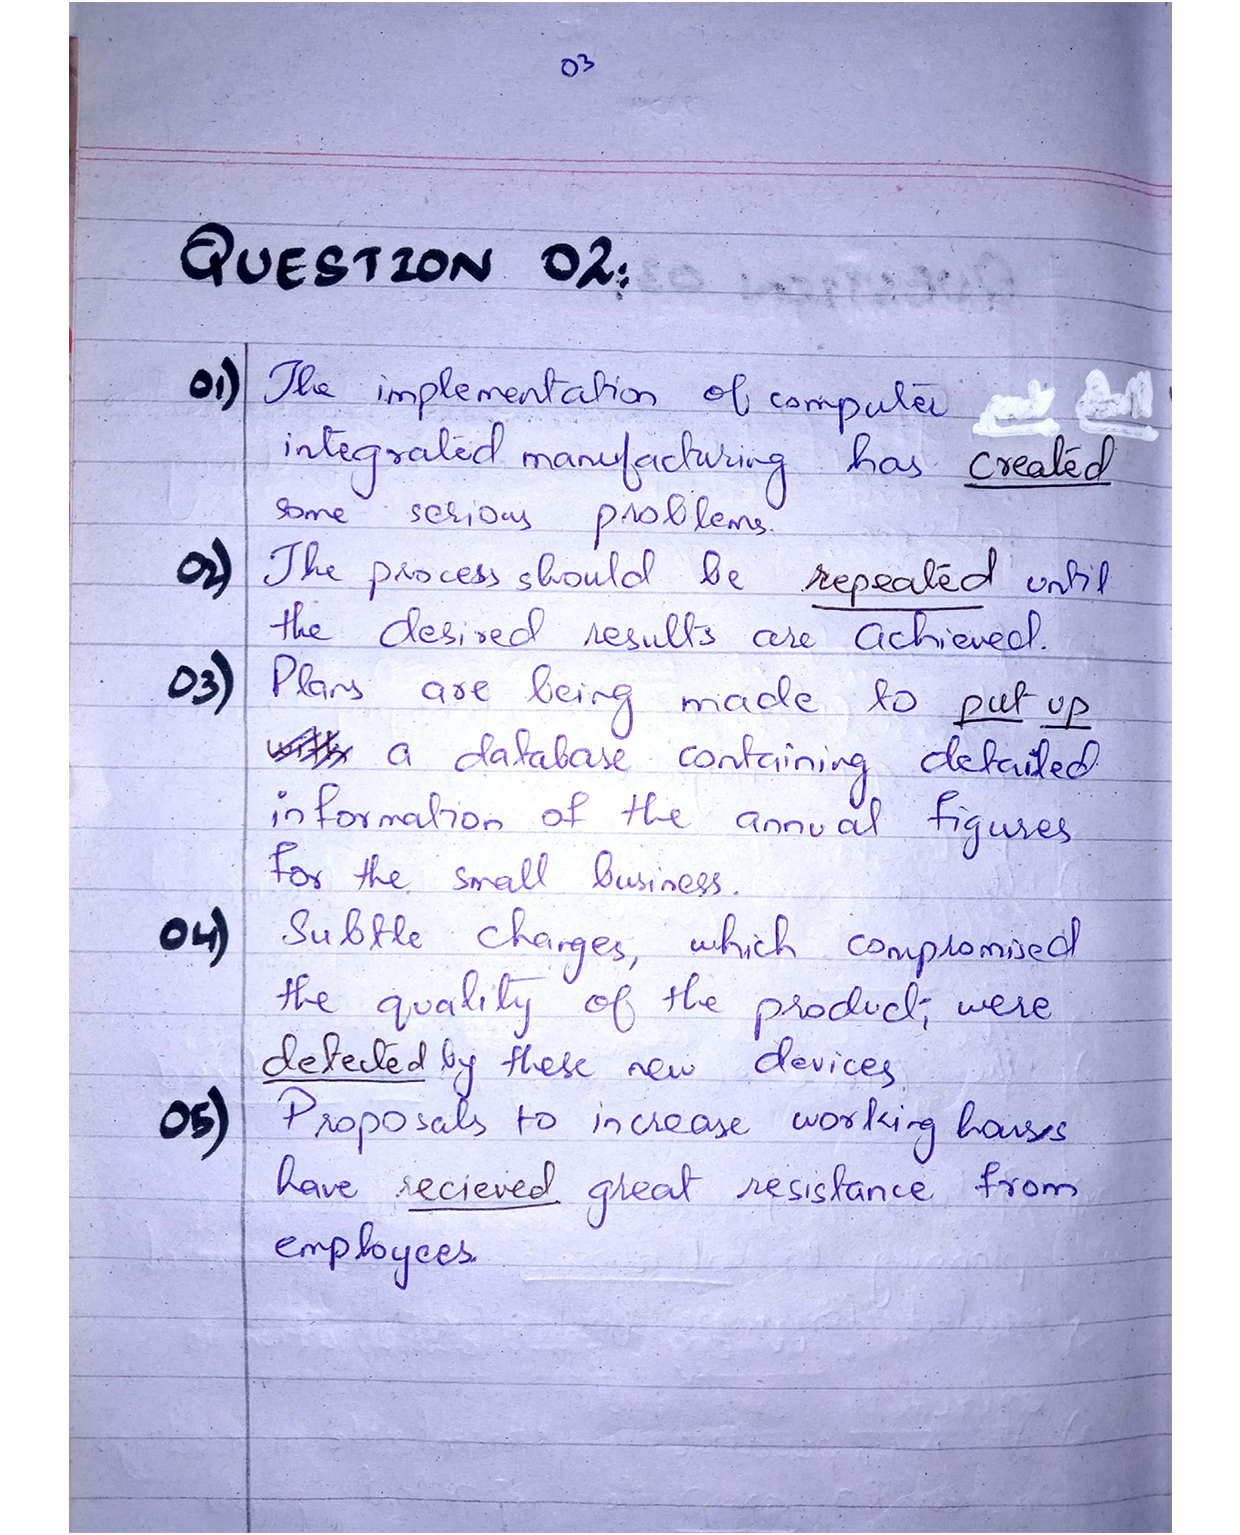 03
QUESTION 02:
01) The implementation of computer
integrated manufacturing has created
some serious problems.
02) The process should be repeated until
the desired results are achieved.
03) Plans are being made to put up
a database containing detailed
information of the annual figures
for the small business.
04) Subtle changes, which compromised
the quality of the product, were
detected by these new devices.
05) Proposals to increase working hours
have recieved great resistance from
employees.